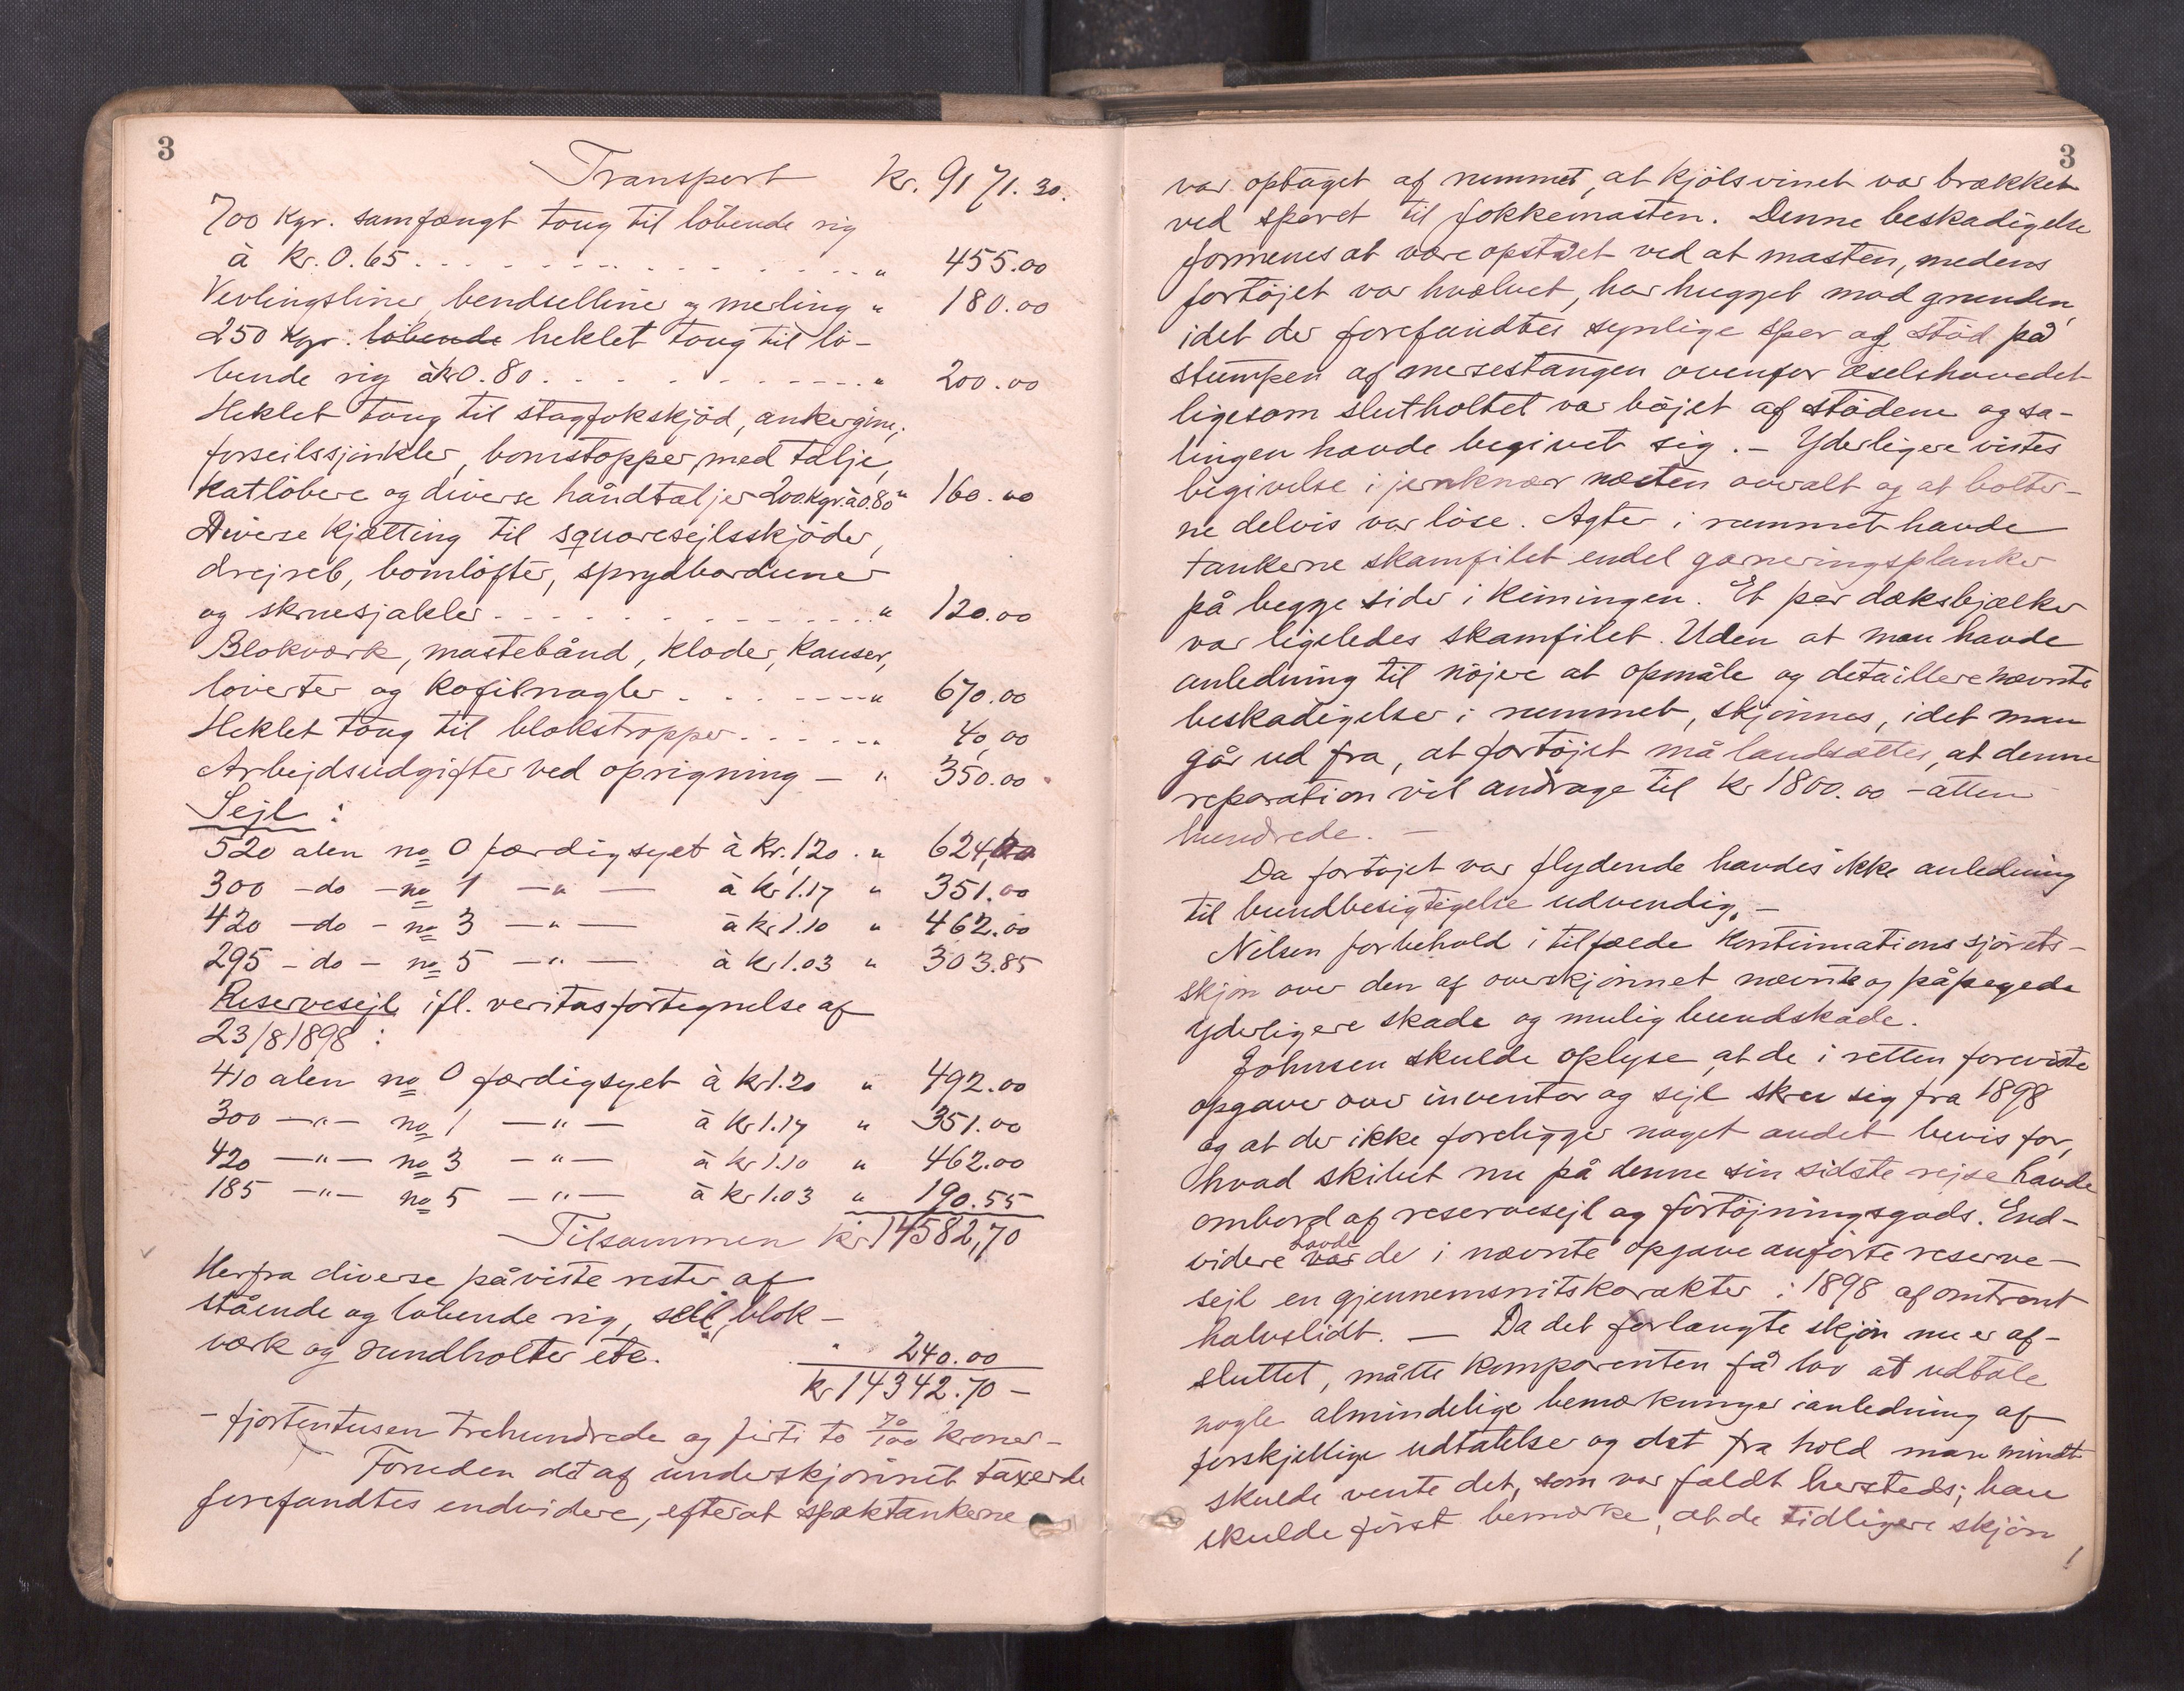 3
Transport kr. 9171.30.
700 kgr. samfængt toug til löbende rig
à kr. 0.65. . . . . . . . . . . . . . . " 455.00
Vevlingsliner, bendselliner og merling " 180.00
250 kgr. löbende heklet toug til lö-
bende rig à kr 0.80. . . . . . . . . . . " 200.00
Heklet toug til stagfokskjöd, ankergine,
forseilssjinkler, bomstopper med talje,
katlöbere og diverse håndtaljer 200 kgr. à 0.80 " 160.00
Diverse kjætting til squaresejlsskjöder,
drejreb, bomlöfter, sprydbarduner
og skruesjakler. . . . . . . . . . . . . " 120.00
Blokværk, mastebånd, kloder, kauser,
löierter og kofilnagler. . . . . . . " 670.00
Heklet toug til blokstropper. . . . . . " 40,00
Arbejdsudgifter ved oprigning — " 350.00
Sejl:
520 alen no 0 færdigsyet à kr. 1,20. " 624,00
300 - do - no 1 — " — à kr 1.17 " 351.00
420 - do - no 3 — " — à kr 1.10 " 462.00
295 - do - no 5 — " — à kr 1.03 " 303.85
Reservesejl ifl. veritasfortegnelse af
23/8 1898:
410 alen no 0 færdigsyet à kr 1.20 " 492.00
300 — " — no 1 — " — à kr 1.17 " 351.00
420 — " — no 3 — " — à kr 1.10 " 462.00
185 — " — no 5 — " — à kr 1.03 " 190.55
Tilsammen kr 14582,70
Herfra diverse påviste rester af
stående og løbende rig, seil, blok-
værk og rundholter etc. " 240.00
kr 14342.70 —
- fjortentusen trehundrede og firti to 70/100 kroner -
Foruden det af underskjönnet taxerte
forefandtes endvidere, efterat spæktankerne
3
var optaget af rummet, at kjölsvinet var brækket
ved sporet til fokkemasten. Denne beskadigelse
formenes at være opstået ved at masten, medens
fortöjet var hvælvet, har hugget mod grunden,
idet der forefandtes synlige spor af stöd på
stumpen af mersestangen ovenfor æselshovedet
ligesom slutholtet var böjet af stödene og sa-
lingen havde begivet sig. — Yderligere vistes
begivelse i jernknær næsten overalt og at bolter-
ne delvis var löse. Agter i rummet havde
tankerne skamfilet endel garneringsplanker
på begge sider i kimingen. Et par dæksbjælker
var ligeledes skamfilet. Uden at man havde
anledning til nöjere at opmåle og detaillere nævnte
beskadigelser i rummet, skjönnes, idet man
går ud fra, at fartöjet må landsættes, at denne
reparation vil andrage til kr 1800.00 - atten
hundrede. —
Da fartöjet var flydende havdes ikke anledning
til bundbesigtigelse udvendig. —
Nilsen forbehold i tilfælde kontinuationssjörets-
skjön over den af overskjönnet nævnte og påpegede
yderligere skade og mulig bundskade.
Johnsen skulde oplyse, at de i retten foreviste
opgaver over inventar og sejl skrev sig fra 1898
og at der ikke foreligger noget andet bevis for,
hvad skibet nu på denne sin sidste rejse havde
ombord af reservesejl og fortöjningsgods. End-
videre var havde de i nævnte opgave anförte reserve-
sejl en gjennemsnitskarakter i 1898 af omtrent
halvslidt. — Da det forlangte skjön nu er af-
sluttet, måtte komparenten få lov at udtale
nogle almindelige bemærkninger i anledning af
forskjellige udtalelser og det fra hold man mindst
skulde vente det, som var faldt hersteds; han
skulde först bemærke, at de tidligere skjön